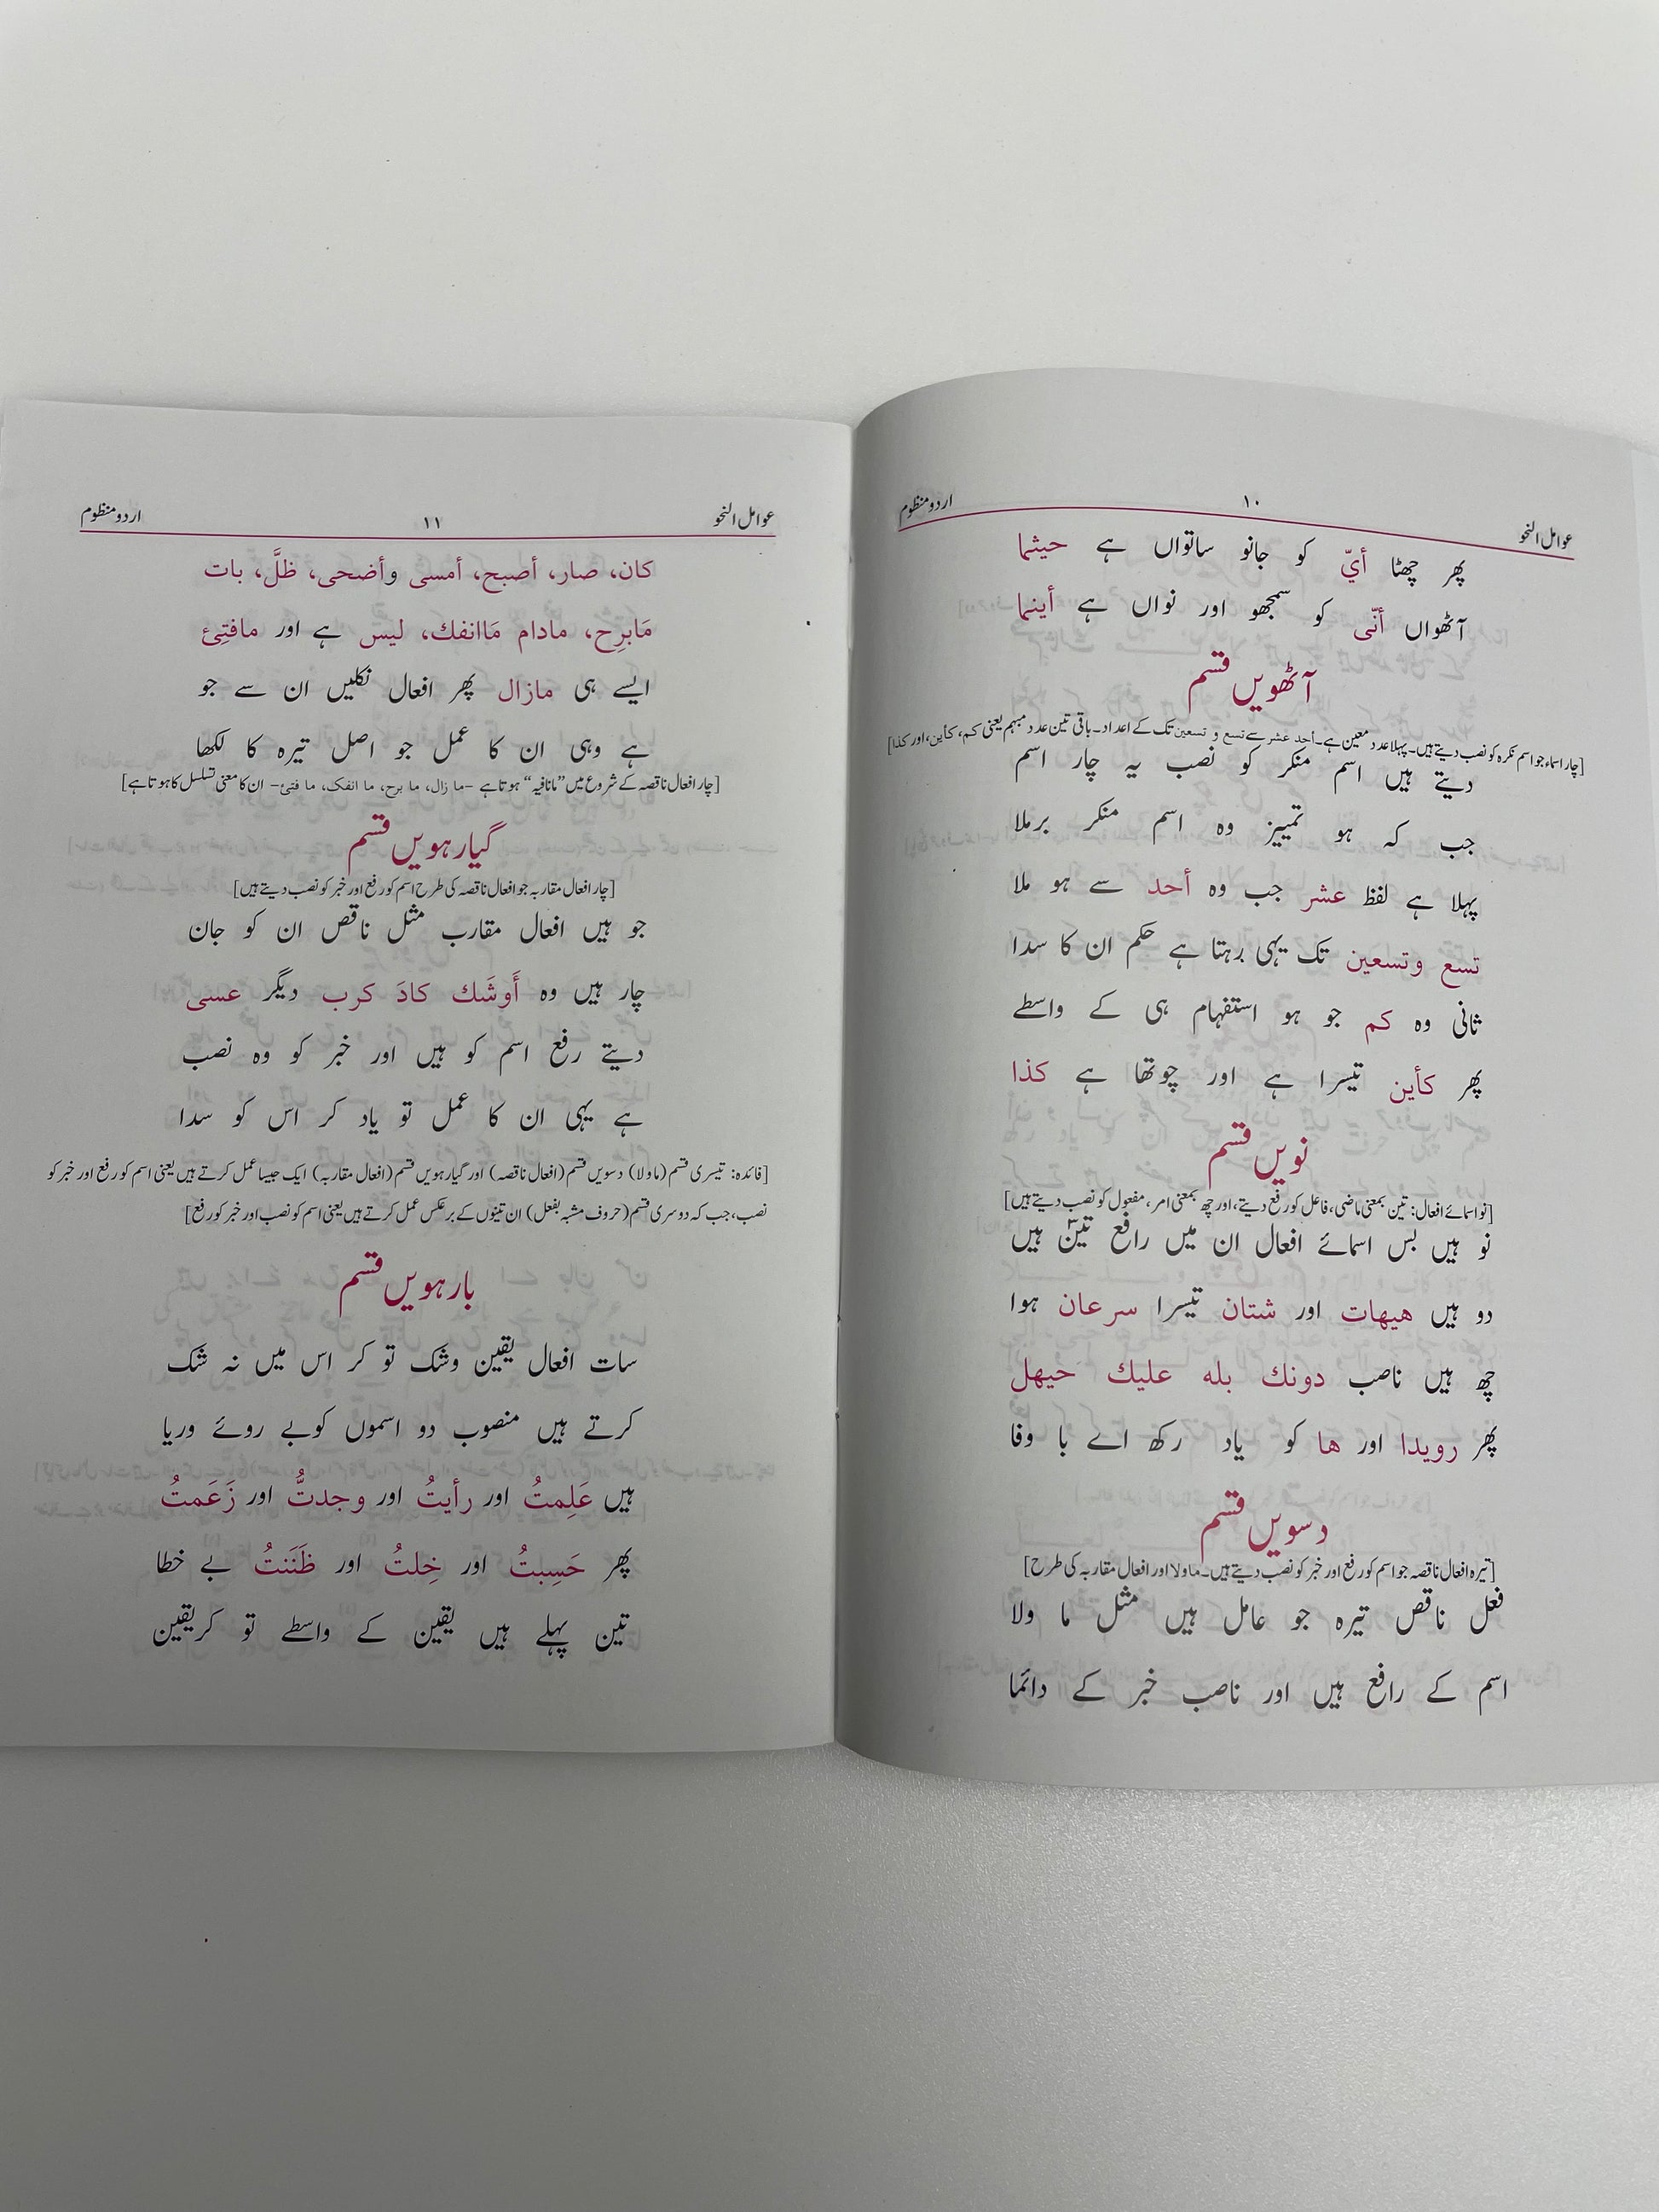 عوامل النحو ۱۰ اردو منظوم
پھر چھٹا أيّ کو جانو ساتواں ہے حیثما
آٹھواں أنّی کو سمجھو اور نواں ہے أینما
آٹھویں قسم
[چار اسماء جو اسم نکرہ کو نصب دیتے ہیں۔ پہلا عدد معین ہے۔ أحد عشر سے تسع و تسعین تک کے اعداد۔ باقی تین عدد مبہم یعنی کم، کأین، اور کذا]
دیتے ہیں اسم منکر کو نصب یہ چار اسم
جب کہ ہو تمییز وہ اسم منکر برملا
پہلا ہے لفظ عشر جب وہ أحد سے ہو ملا
تسع وتسعین تک یہی رہتا ہے حکم ان کا سدا
ثانی وہ کم جو ہو استفہام ہی کے واسطے
پھر کأین تیسرا ہے اور چوتھا ہے کذا
نویں قسم
[نو اسمائے افعال: تین بمعنی ماضی، فاعل کو رفع دیتے، اور چھ بمعنی امر، مفعول کو نصب دیتے ہیں]
نو ہیں بس اسمائے افعال ان میں رافع تین ہیں
دو ہیں هيهات اور شتان تیسرا سرعان ہوا
چھ ہیں ناصب دونك بله عليك حيهل
پھر رویدا اور ها کو یاد رکھ اے با وفا
دسویں قسم
[تیرہ افعال ناقصہ جو اسم کو رفع اور خبر کو نصب دیتے ہیں۔ ما ولا اور افعال مقاربہ کی طرح]
فعل ناقص تیرہ جو عامل ہیں مثل ما ولا
اسم کے رافع ہیں اور ناصب خبر کے دائما
عوامل النحو ۱۱ اردو منظوم
كان، صار، أصبح، أمسى وأضحى، ظلَّ، بات
مَابرِح، مادام مَاانفك، ليس ہے اور مافتِئ
ایسے ہی مازال پھر افعال نکلیں ان سے جو
ہے وہی ان کا عمل جو اصل تیرہ کا لکھا
[چار افعال ناقصہ کے شروع میں ”ما نافیہ“ ہوتا ہے -ما زال، ما برح، ما انفک، ما فتئ- ان کا معنی تسلسل کا ہوتا ہے]
گیارہویں قسم
[چار افعال مقاربہ جو افعال ناقصہ کی طرح اسم کو رفع اور خبر کو نصب دیتے ہیں]
جو ہیں افعال مقارب مثل ناقص ان کو جان
چار ہیں وہ أَوشَك كادَ كرب دیگر عسى
دیتے رفع اسم کو ہیں اور خبر کو وہ نصب
ہے یہی ان کا عمل تو یاد کر اس کو سدا
[فائدہ: تیسری قسم (ما ولا) دسویں قسم (افعال ناقصہ) اور گیارہویں قسم (افعال مقاربہ) ایک جیسا عمل کرتے ہیں یعنی اسم کو رفع اور خبر کو
نصب، جب کہ دوسری قسم (حروف مشبہ بفعل) ان تینوں کے برعکس عمل کرتے ہیں یعنی اسم کو نصب اور خبر کو رفع]
بارہویں قسم
سات افعال یقین وشک تو کر اس میں نہ شک
کرتے ہیں منصوب دو اسموں کو بے روئے وریا
ہیں عَلِمتُ اور رأيتُ اور وجدتُّ اور زَعَمتُ
پھر حَسِبتُ اور خِلتُ اور ظَنَنتُ بے خطا
تین پہلے ہیں یقین کے واسطے تو کر یقین